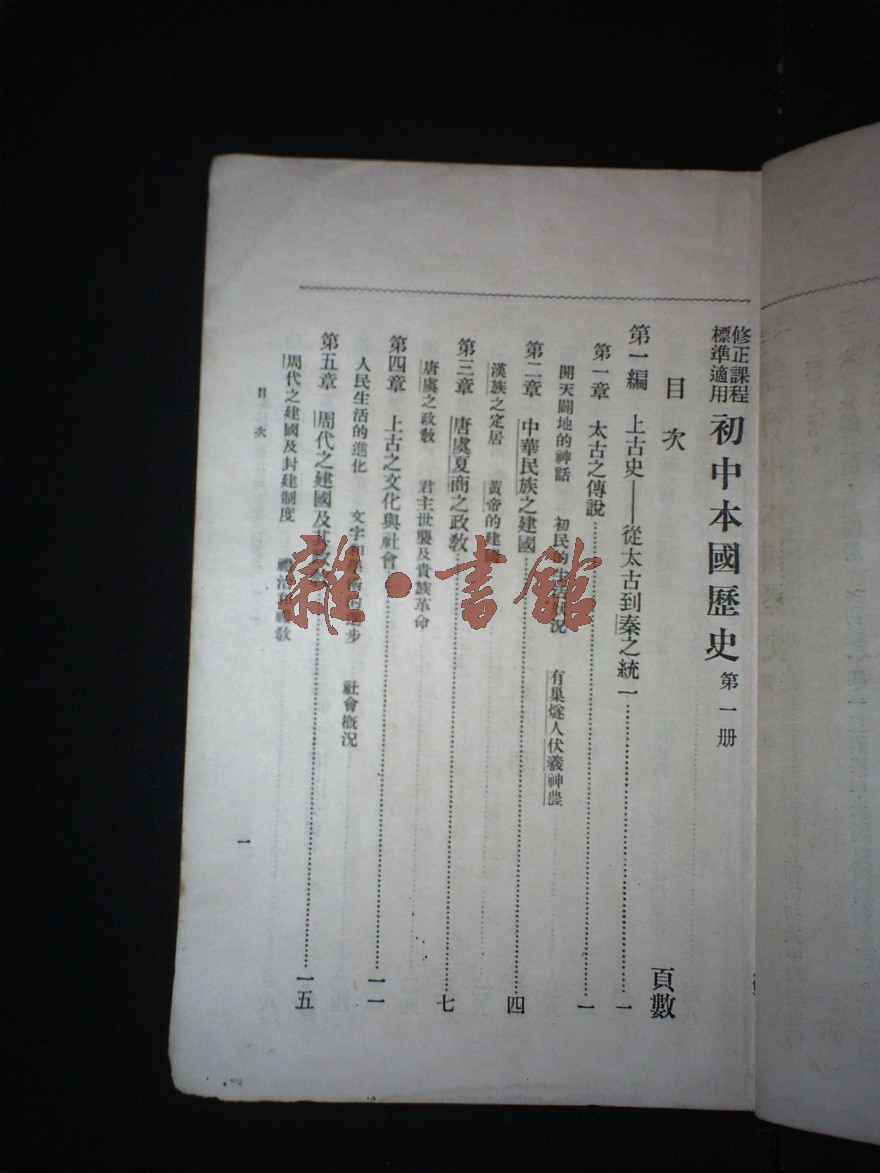 修正課程
標準適用
初中本國歷史 第一册
目次
頁數
第一編 上古史——從太古到秦之統一 一
第一章 太古之傳說 一
開天闢地的神話 初民的生活狀況 有巢燧人伏羲神農
第二章 中華民族之建國 四
漢族之定居 黃帝的建國
第三章 唐虞夏商之政教 七
唐虞之政教 君主世襲及貴族革命
第四章 上古之文化與社會 一一
人民生活的進化 文字和 的進步 社會概況
第五章 周代之建國及其 一五
周代之建國及封建制度 禮治 教
目次
一
雜·書館